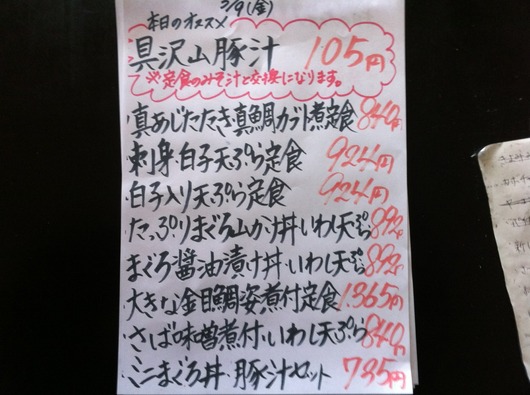 3/9(金)
本日のオススメ
具沢山豚汁 105円
※定食のみそ汁と交換になります。
・真あじたたき・真鯛カブト煮定食 840円
・刺身・白子天ぷら定食 924円
・白子入り天ぷら定食 924円
・たっぷりまぐろ山かけ丼・いわし天ぷら 892円
・まぐろ醤油漬け丼・いわし天ぷら 892円
・大きな金目鯛姿煮付定食 1.365円
・さば味噌煮付・いわし天ぷら 840円
・ミニまぐろ丼・豚汁セット 735円